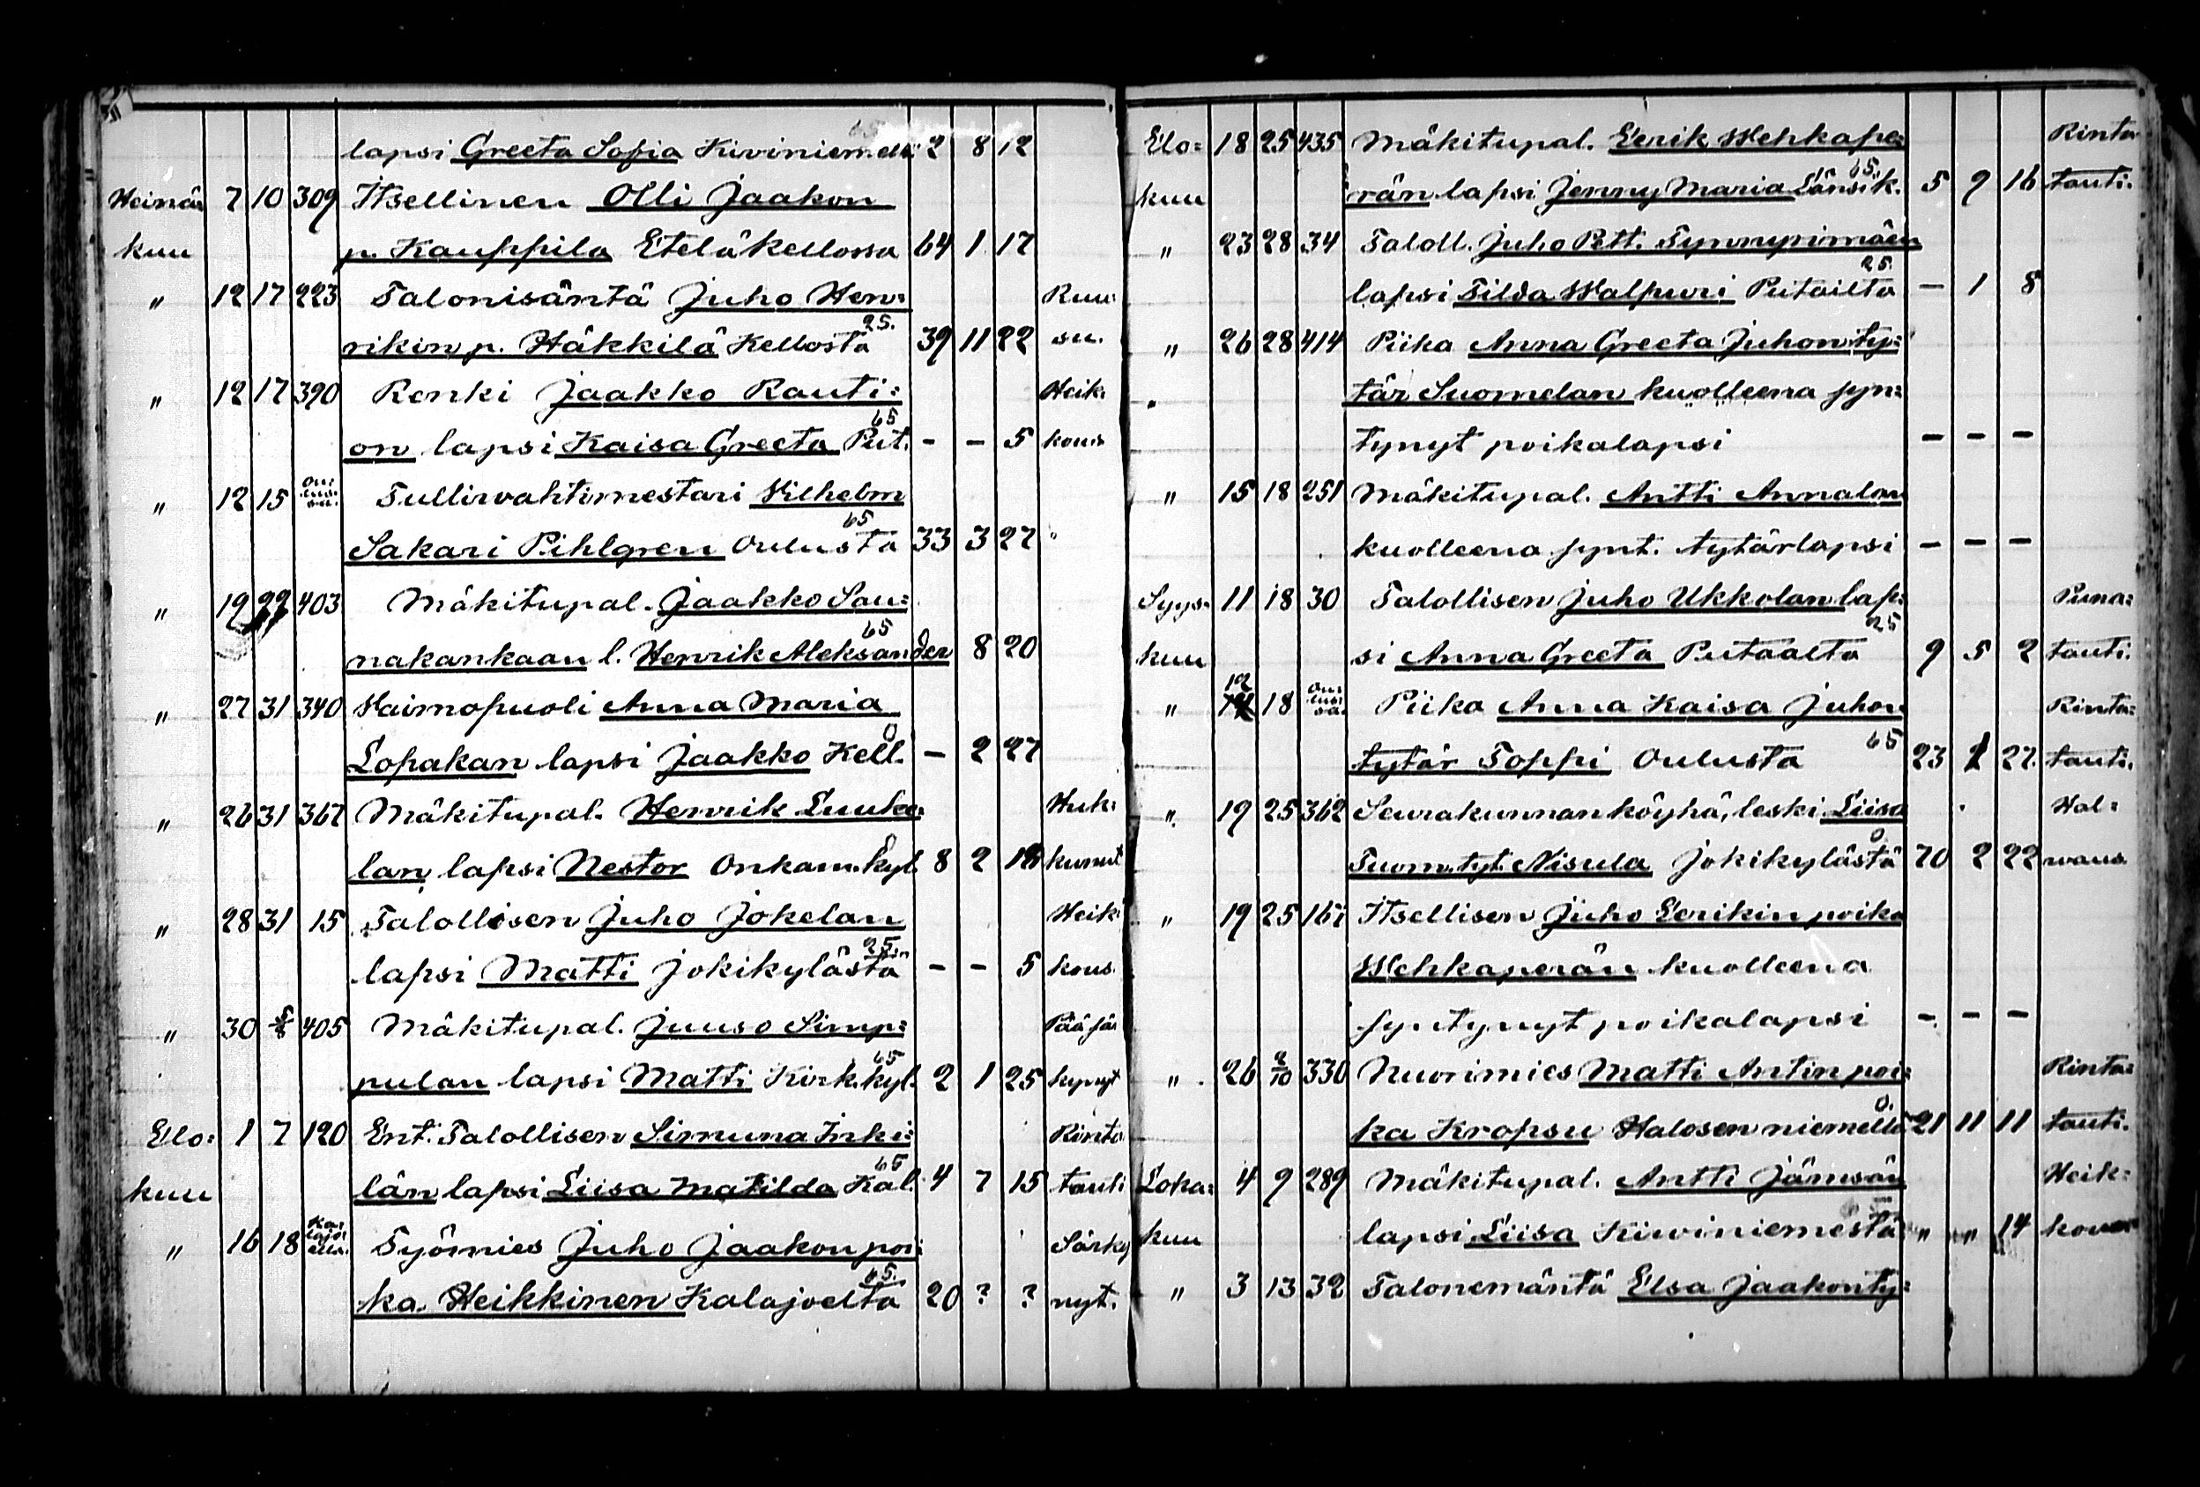 lapsi Greeta Sofia Kiviniemellä 2 8 12
Heinä 7 10 309 Itsellinen Olli Jaakon
kuu p. Kauppila Eteläkellossa 64 1 17
" 12 17 223 Talonisäntä Juho Hen= Ruu
25.
rikin p. Häkkilä Kellosta 39 11 22 su.
" 12 17 390 Renki Jaakko Rauti= Heik
65
on lapsi Kaisa Greeta Put. - - 5 kous
" 12 15 Ou= lus= sa. Tullivahtimestari Vilhelm
65
Sakari Pihlgren Oulusta 33 3 27 "
" 19 403 Mäkitupal. Jaakko Sau=
65
nakankaan l. Henrik Aleksander 8 20
" 27 31 340 Vaimopuoli Anna Maria
0
Lopakan lapsi Jaakko Kell. - 2 27
" 26 31 367 Mäkitupal. Henrik Luuke= Huk=
lan lapsi Nestor Onkam.kyl. 8 2 kunut
" 28 31 15 Talollisen Juho Jokelan Heik
25.
lapsi Matti Jokikylästä - - 5 kous.
" 30 5/8 405 Mäkitupal. Juuso Simp= Pääjär
65
pulan lapsi Matti Kirk.kyl. 2 1 25 kynyt
Elo= 1 7 120 Ent. Talollisen Simuna Inki= Rinta
65
kuu län lapsi Liisa Matilda Kal. 4 7 15 tauti
" 16 18 Ka= lajo= ella. Työmies Juho Jaakon poi= Särky
65.
ka Heikkinen Kalajoelta 20 ? ? nyt.
Elo= 18 25 435 Mäkitupal. Eerik Wehkape= Rinta
65.
kuu rän lapsi Jenny Maria Länsik. 5 9 16 tauti.
" 23 28 34 Taloll. Juho Pett. Tynnyrimäen
25.
lapsi Tilda Walpuri Putailta - 1 8
" 26 28 414 Piika Anna Greeta Juhon ty=
tär Suomelan kuolleena syn=
tynyt poikalapsi - - -
" 15 18 251 Mäkitupal. Antti Annalan
kuolleena synt. tytärlapsi - - -
Syys= 11 18 30 Talollisen Juho Ukkolan lap= Puna=
25
kuu si Anna Greeta Putaalta 9 5 2 tauti.
" 12 18 Ou= lus= sa. Piika Anna Kaisa Juhon Rinta=
65
tytär Toppi Oulusta 23 27. tauti.
" 19 25 362 Seurakunnanköyhä, leski Liisa Hal=
0
Tuom. tyt. Nisula Jokikylästä 70 2 22 waus
" 19 25 167 Itsellisen Juho Eerikin poika
Wehkaperän kuolleena
syntynyt poikalapsi - - -
" 26 2/10 330 Nuorimies Matti Antin poi= Rinta=
0.
ka Kropsu Halosenniemellä 21 11 11 tauti.
Loka= 4 9 289 Mäkitupal. Antti Jämsän Heik=
kuu lapsi Liisa Kiwiniemestä " " 14 kous
" 3 13 32 Talonemäntä Elsa Jaakonty=